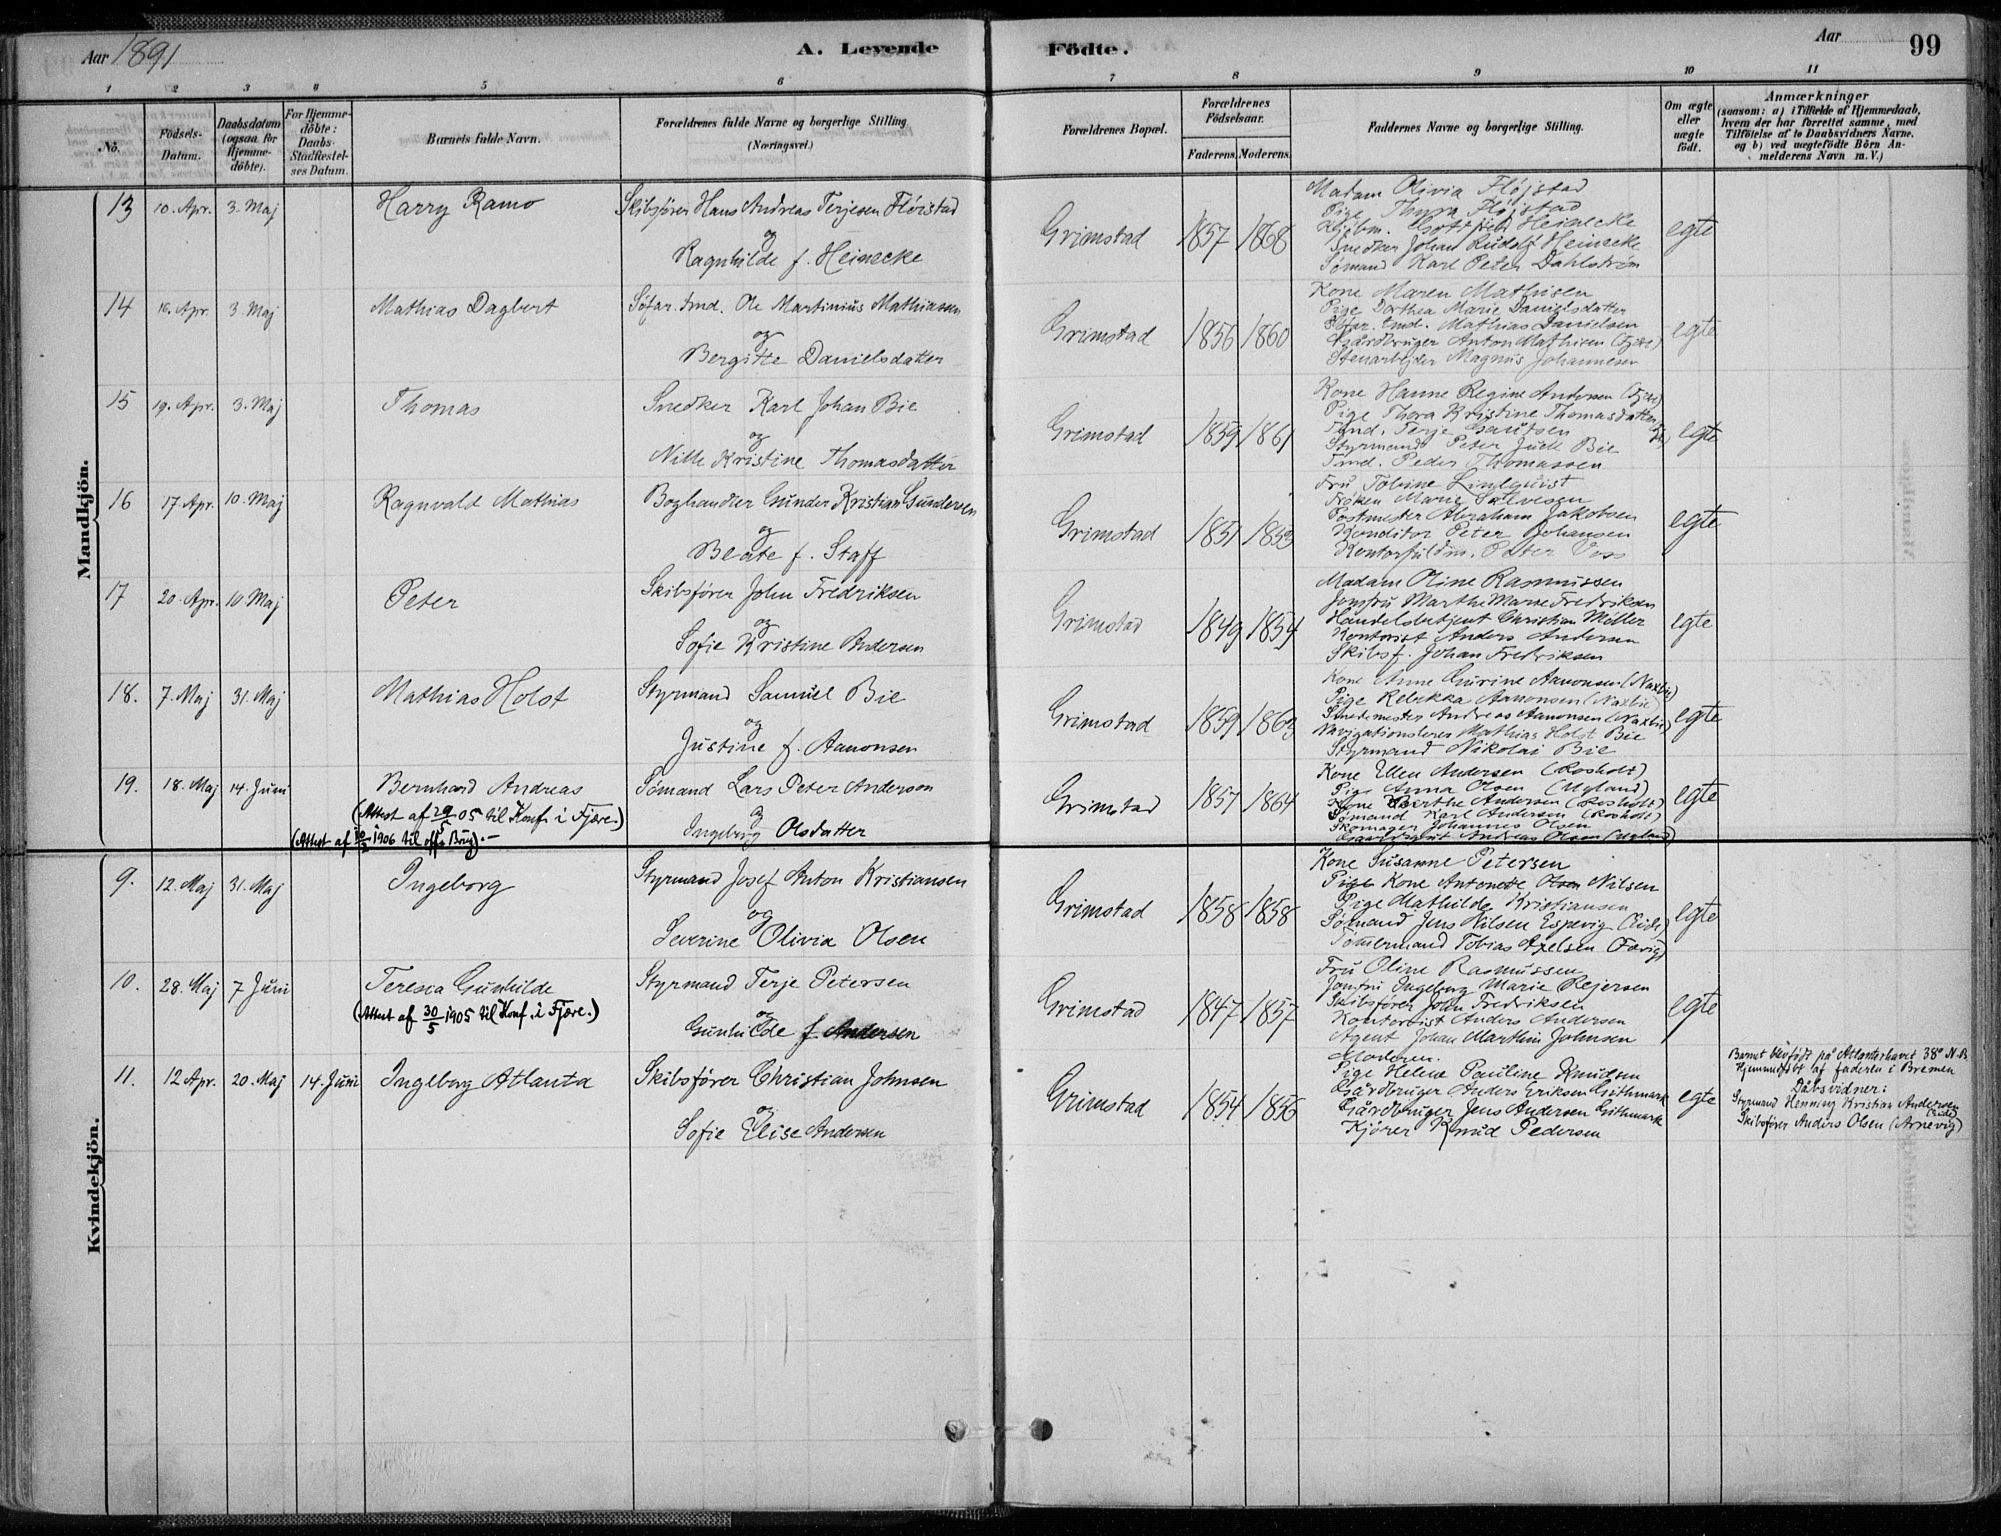 Aar 1891
A. Levende Födte.
Aar
99
1 2 3 4 5 6 7 8 9 10 11
No.
Födsels-Datum.
Daabsdatum (ogsaa for Hjemmedöbte).
For Hjemmedöbte: Daabs-Stadfæstelses Datum.
Barnets fulde Navn.
Forældrenes fulde Navne og borgerlige Stilling. (Næringsvei.)
Forældrenes Bopæl.
Forældrenes Födselsaar.
Faderens. Moderens.
Faddernes Navne og borgerlige Stilling.
Om ægte eller uægte födt.
Anmærkninger
(saasom: a) i Tilfælde af Hjemmedaab, hvem der har forrettet samme, med Tilföielse af to Daabsvidners Navne, og b) ved uægtefödte Börn Anmelderens Navn m. V.)
Mandkjön.
13 10. Apr. 3. Maj Harry Ramo
Skibsfører Hans Andreas Terjesen Fløistad
og
Ragnhilde f. Heinecke
Grimstad 1857 1868
Madam Olivia Fløjstad
Pige Thora Fløjstad
Kjøbm. Gottfied Heinecke
Snedker Johan Rudolf Heinecke
Sømand Karl Peter Dahlstrøm
egte
14 16. Apr. 3 Maj Mathias Dagbert
Søfar. Tmd. Ole Martinius Mathiassen
og
Bergitte Danielsdatter
Grimstad 1856 1860
Kone Maren Mathisen
Pige Dorthea Marie Danielsdatter
Søfar. Tmd. Mathias Danielsen
Gårdbruger Anton Mathisen (Fjære)
Stenarbejder Magnus Johannesen
egte
15 19. Apr. 3. Maj Thomas
Snedker Karl Johan Bie
og
Nille Kristine Thomasdatter
Grimstad 1859 1861
Kone Hanne Regine Andersen (Fjære)
Pige Thora Kristine Thomasdatter
Tmd. Terje Gautsen
Styrmand Peter Juell Bie
Tmd. Peder Thomassen
egte
16 17. Apr. 10. Maj Ragnvald Mathias
Boghandler Gunder Kristian Gundersen
og
Beate f. Staff
Grimstad 1851 1853
Fru Tobine Lindquist
Frøken Marie Salvesen
Postmester Abraham Jakobsen
Konditor Peter Johansen
Kontorfuldm. Peter Voss
egte
17 20. Apr. 10 Maj Peter
Skibsfører John Fredriksen
og
Sofie Kristine Andersen
Grimstad 1849 1854
Madam Oline Rasmussen
Jomfru Marthe Marie Fredriksen
Handelsbetjent Christian Möller
Kontorist Anders Andersen
Skibsf. Johan Fredriksen
egte
18. 7. Maj 31. Maj Mathias Holst
Styrmand Samuel Bie
og
Justine f. Aanonsen
Grimstad 1859 1863
Kone Anne Gurine Aanonsen (Naxbie)
Pige Rebekka Aanonsen (Naxbie)
Smedemester Andreas Aanonsen (Naxbie)
Navigationslærer Mathias Holst Bie
Styrmand Nikolai Bie
egte
19. 18. Maj 14. Juni Bernhard Andreas
(Attest af 20/5 05 til Konf. i Fjære.)
(Attest af 10/2 1906 til off. Brug).-
Sømand Lars Peter Anderson
og
Ingeborg Olsdatter
Grimstad 1857 1864
Kone Ellen Andersen (Rosholt)
Pige Anna Olsen (Ugland)
Kone Berthe Andersen (Rosholt)
Sømand Karl Andersen (Rosholt)
Skomager Johannes Olsen
Andreas Olsen (Ugland)
egte
Kvindekjön.
9. 12. Maj 31. Maj Ingeborg
Styrmand Josef Anton Kristiansen
og
Severine Olivia Olsen
Grimstad 1858 1858
Kone Susanne Petersen
Pige Kone Antonette Olsen Nilsen
Pige Mathilde Kristiansen
Sømand Jens Nilsen Espevig (Eide)
Tømmermand Tobias Axelsen (Færvig)
egte
10. 28. Maj 7 Juni Teresia Gunhilde
(Attest af 30/5 1905 til Konf. i Fjære.)
Styrmand Terje Petersen
og
Gunhilde f. Andersen
Grimstad 1847 1857
Fru Oline Rasmussen
Jomfru Ingeborg Marie Rejersen
Skibsfører John Fredriksen
Kontorist Anders Andersen
Agent Johan Martin Johnsen
egte
11. 12 Apr. 20. Maj 14. Juni Ingeborg Atlanta
Skibsfører Christian Johnsen
og
Sofie Elise Andersen
Grimstad 1854 1856
Moderen.
Pige Helene Pauline Knudsen
Gårdbruger Anders Eriksen Grithmark
Gårdbruger Jens Andersen Grithmark
Kjører Knud Pedersen
egte
Barnet blev født på Atlanterhavet 38° N.B.
Hjemmedøbt af faderen i Bremen
Dåbsvidner:
Styrmand Henning Kristian Andersen
(Eide)
Skibsfører Anders Olsen (Arnevig)